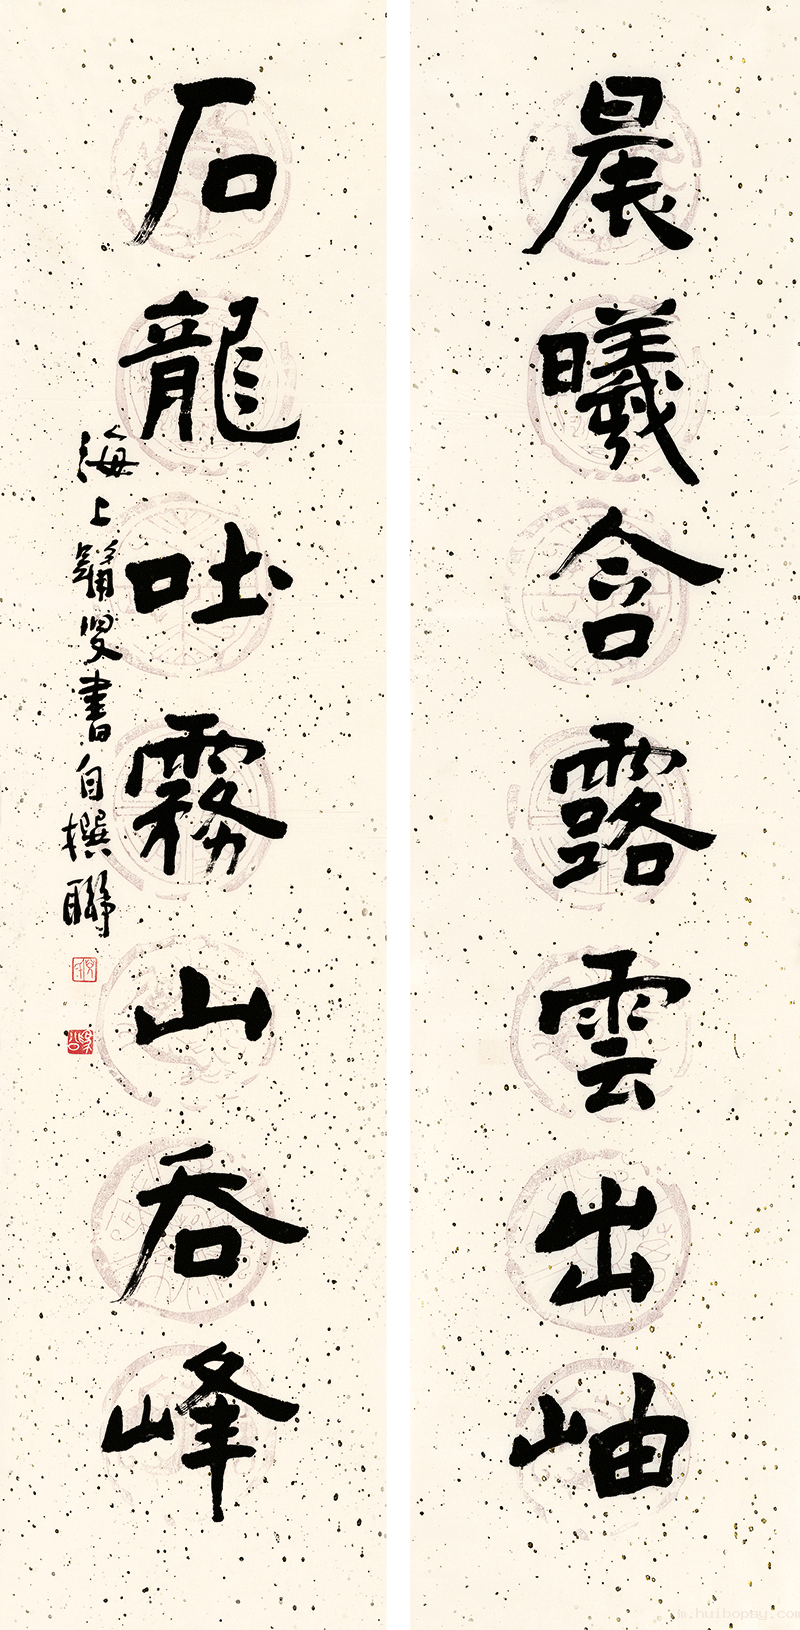 晨曦含露雲出岫
石龍吐霧山吞峰
海上 叟書自撰聯
m.huibopay.com